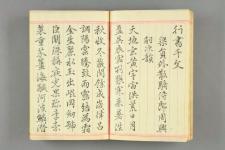 行書千文
梁員外散騎侍郎周興
嗣次韻
天地玄黃宇宙洪荒日月
盈昃辰宿列張寒來暑往
秋收冬藏閏餘成歲律呂
調陽雲騰致雨露結為霜
金生麗水玉出崑岡劍號
巨闕珠稱夜光果珍李柰
菜重芥薑海鹹河淡鱗潛